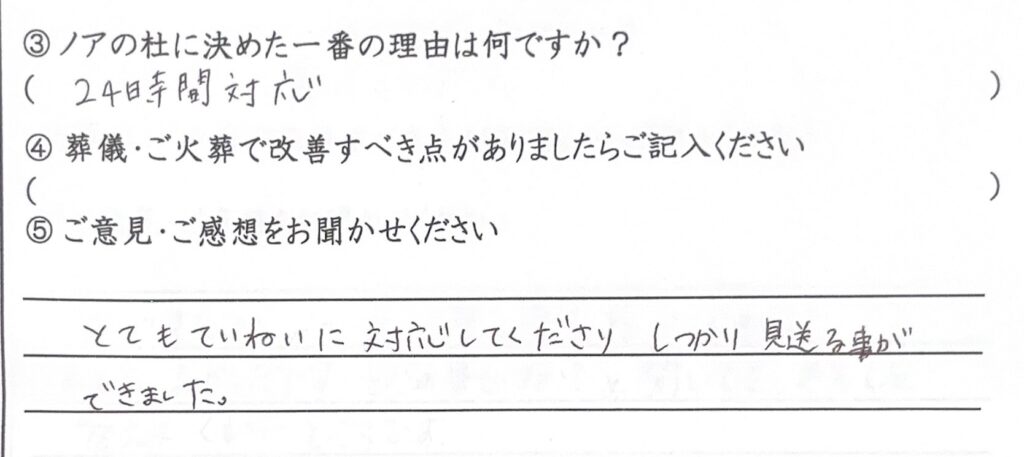 ③ノアの杜に決めた一番の理由は何ですか？
( 24時間対応 )
④ 葬儀・ご火葬で改善すべき点がありましたらご記入ください
( )
⑤ ご意見・ご感想をお聞かせください
とてもていねいに対応してくださり しっかり見送る事が
できました。